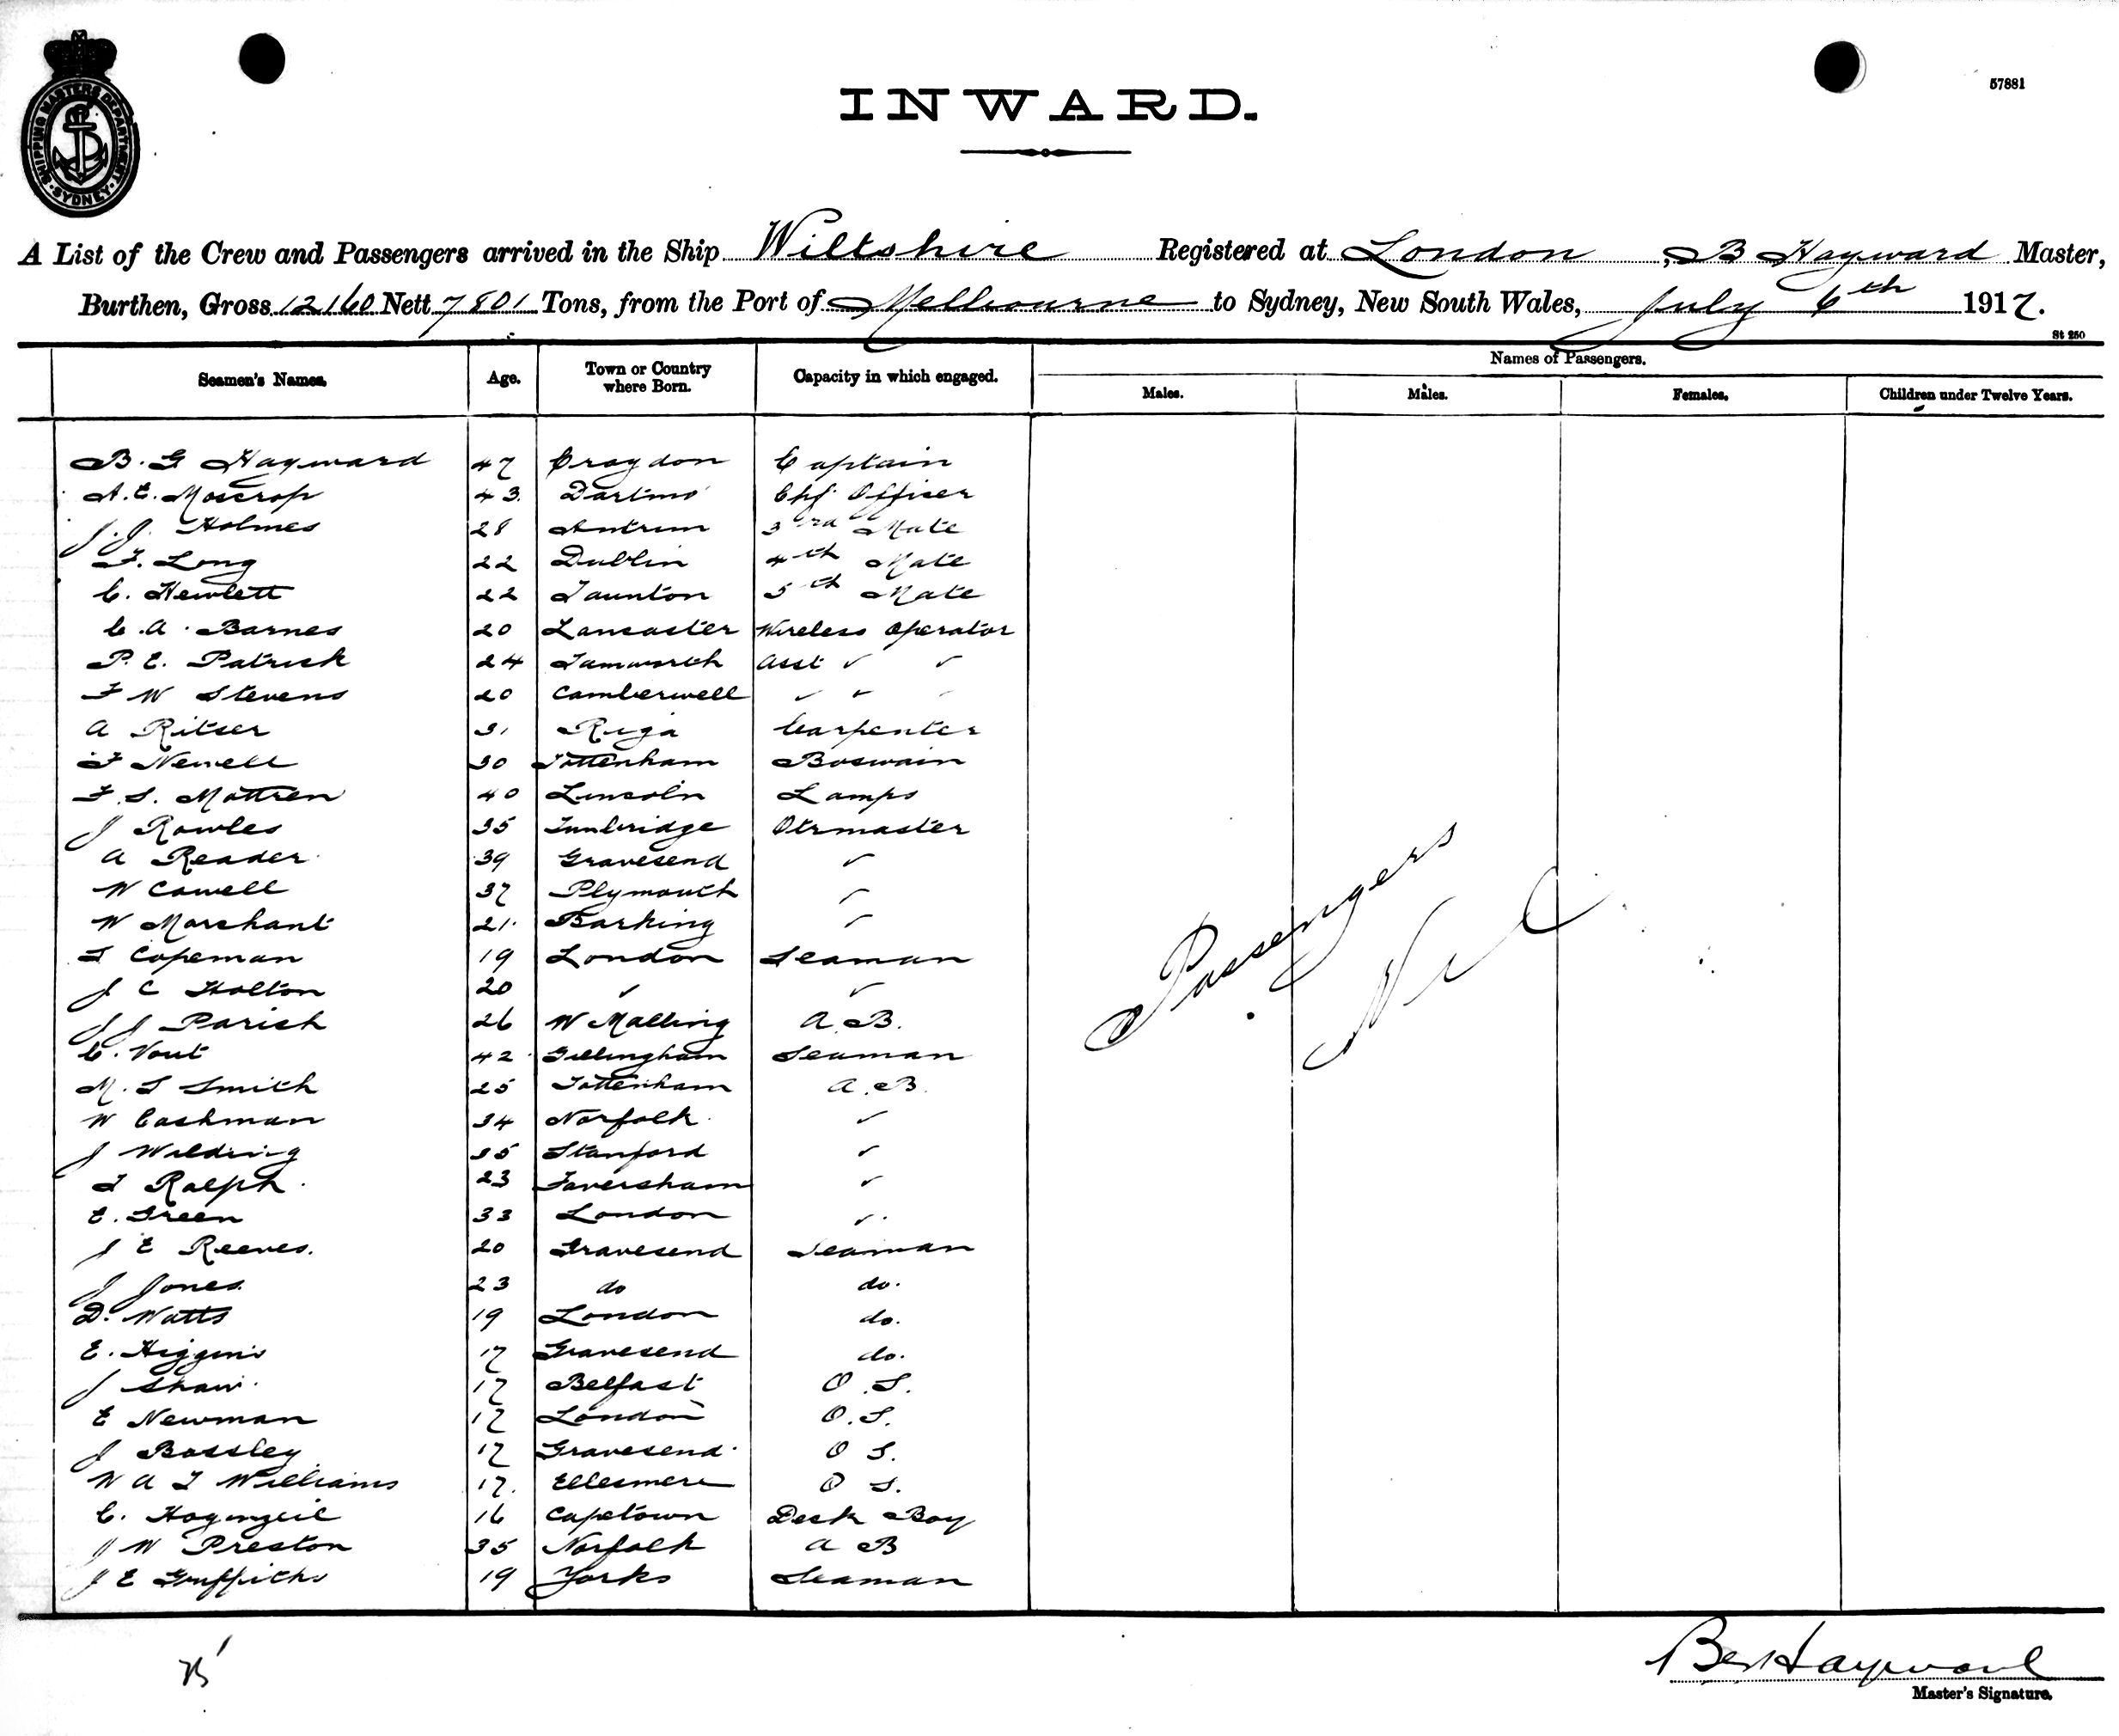 SHIPPING MASTERS DEPARTMENT · SYDNEY ·
57881
INWARD.
A List of the Crew and Passengers arrived in the Ship Wiltshire Registered at London, B Hayward Master,
Burthen, Gross 12160 Nett 7801 Tons, from the Port of Melbourne to Sydney, New South Wales, July 6th 1917.
St 250
Seamen's Names. Age. Town or Country where Born. Capacity in which engaged. Names of Passengers.
Males. Males. Females. Children under Twelve Years.
B. G Hayward 47 Croydon Captain
A. E. Moscrop 43 Chf Officer
J. J. Holmes 28 Antrim 3rd Mate
F. Long 22 Dublin 4th Mate
C. Hewlett 22 Taunton 5th Mate
C. A. Barnes 20 Lancaster Wireless Operator
P. E. Patrick 24 Tamworth Asst " "
F W Stevens 20 Camberwell " " "
A Ritser 31 Riga Carpenter
F Newell 30 Tottenham Boswain
F. S. Mottren 40 Lincoln Lamps
J Rowles 35 Tunbridge Qtrmaster
A Reader 39 Gravesend "
W Cowell 37 Plymouth "
W Marchant 21 Barking "
T Copeman 19 London Seaman
J C Holton 20 " "
J J Parish 26 W Malling A.B.
C. Vout 42 Gillingham Seaman
M. T Smith 25 Tottenham A.B.
W Cashman 34 Norfolk "
J Wilding 35 Stanford "
T Ralph 23 Faversham "
E. Green 33 London "
J E Reeves. 20 Gravesend Seaman
J Jones. 23 do do.
D. Watts 19 London do.
E. Higgins 17 Gravesend do.
J Shaw. 17 Belfast O.S.
E Newman 17 London O.S.
J Bossley 17 Gravesend O S.
W A T Williams 17. Ellesmere O S.
C. 16 Capetown Deck Boy
J W Preston 35 Norfolk A B
J E Griffiths 19 Yorks Seaman
Passengers
Nil
B Hayward
Master's Signature.